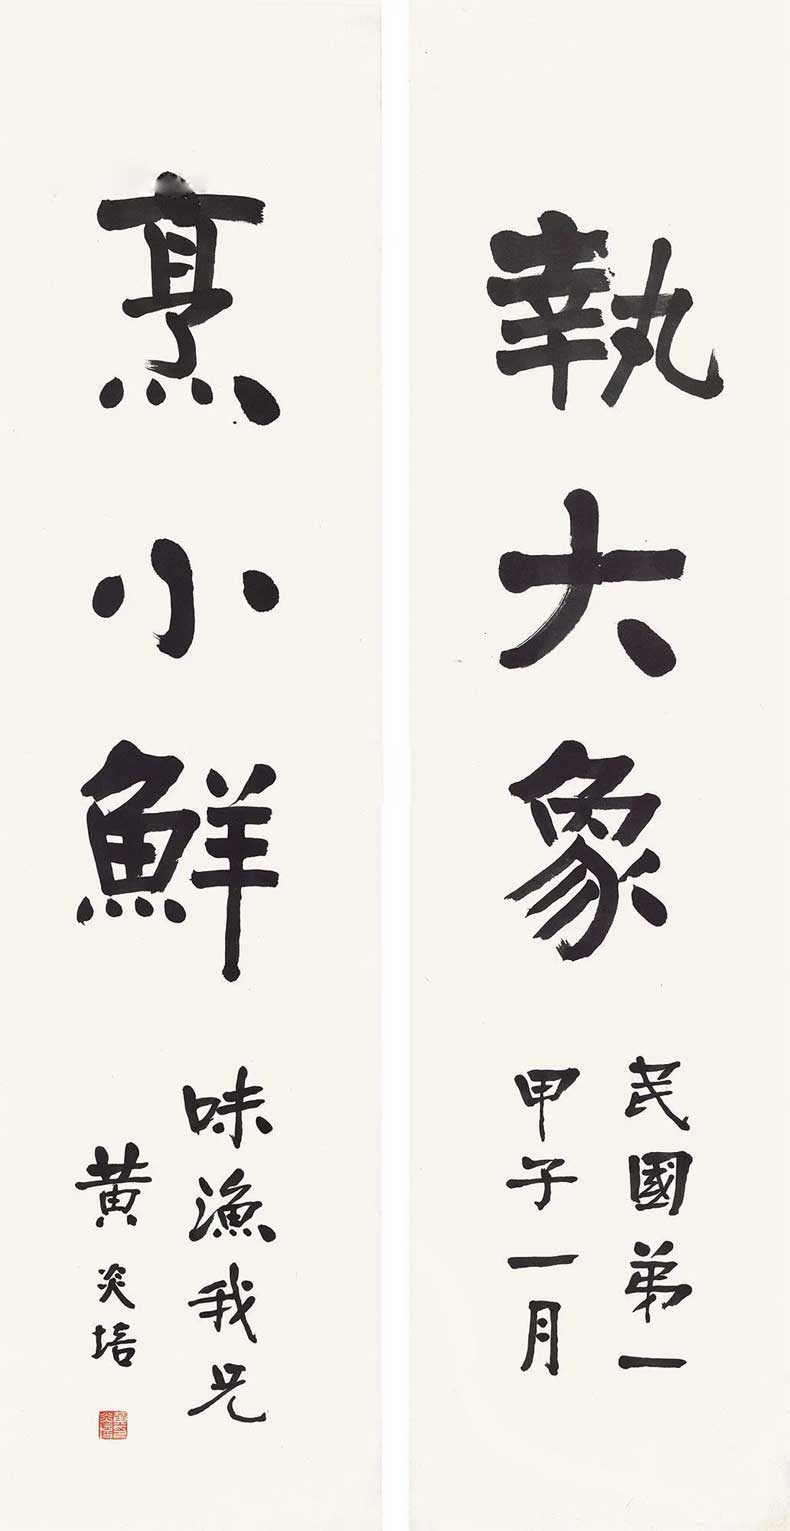 執大象
民國弟一
甲子一月
烹小鮮
味漁我兄
黃炎培